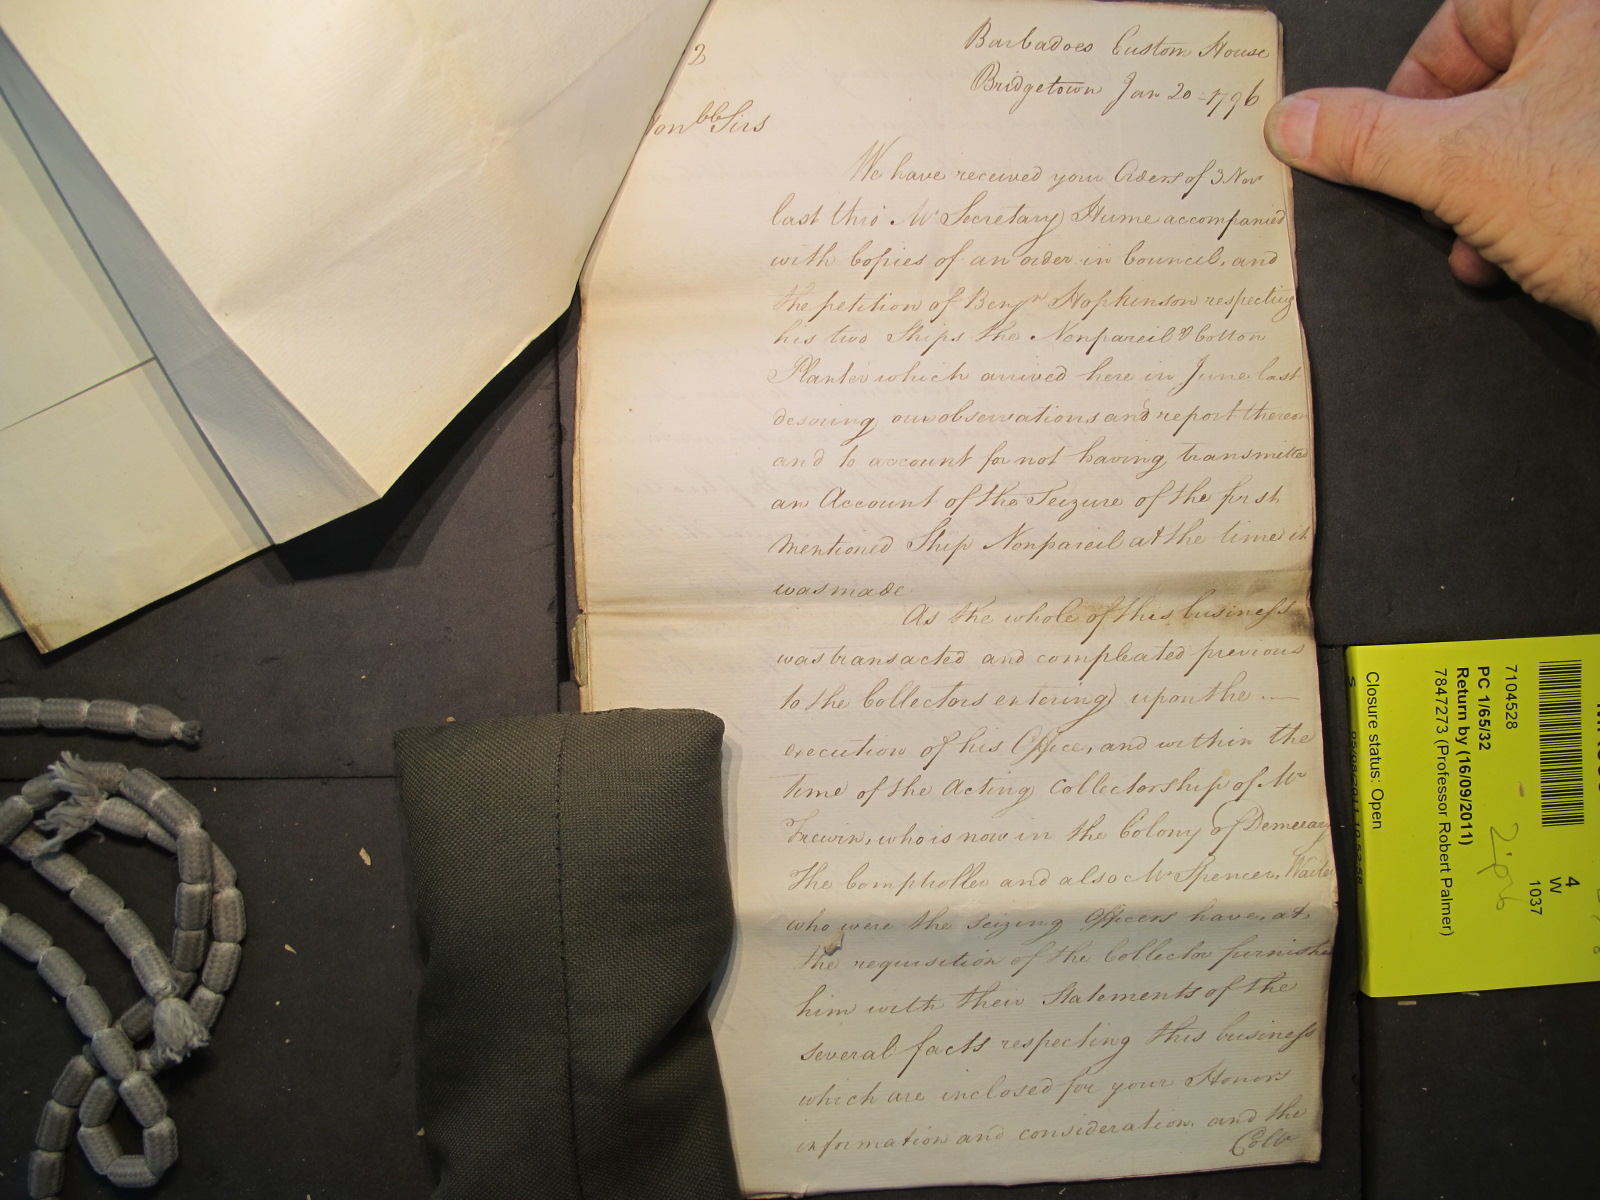 2
Barbadoes Custom House
Bridgetown Jan 20 1796
Honbb Sirs
We have received your Orders of 3 Novr
last thro Mr Secretary Hume accompanied
with Copies of an order in Council, and
the petition of Benjn Hopkinson respecting
his two Ships the Nonpareil & Cotton
Planter which arrived here in June last
desiring our observations and report thereon
and to account for not having transmitted
an Account of the Seizure of the first
mentioned Ship Nonpareil at the time it
was made.
As the whole of this business
was transacted and compleated previous
to the Collectors entering upon the —
execution of his Office, and within the
time of the Acting Collectorship of Mr
Frewin, who is now in the Colony of Demerary
The Comptroller and also Mr Spencer, Waiter
who were the seizing Officers have, at
the requisition of the Collector furnished
him with their Statements of the
several facts respecting this business
which are inclosed for your Honors
information and consideration, and the
Collr
7104528
PC 1/65/32
Return by (16/09/2011)
7847273 (Professor Robert Palmer)
Closure status: Open
S
4
W
1037